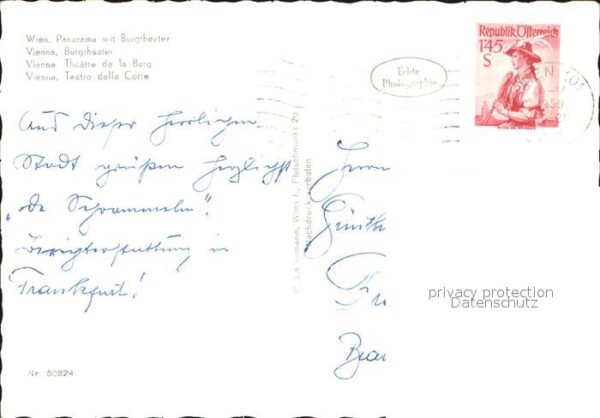 Wien, Panorama mit Burgtheater
Vienna, Burgtheater
Vienne Théâtre de la Burg
Vienna, Teatro della Corte
Echte
Photographie
Republik Österreich
1·45
S
Aus dieser herrlichen
Stadt grüßen herzlichst
„De Schrammeln".
Berichterstattung in
Frankfurt!
Wien I., Fleischmarkt
Nachdruck verboten
Herrn
Günth
privacy protection
Datenschutz
Nr. 50824